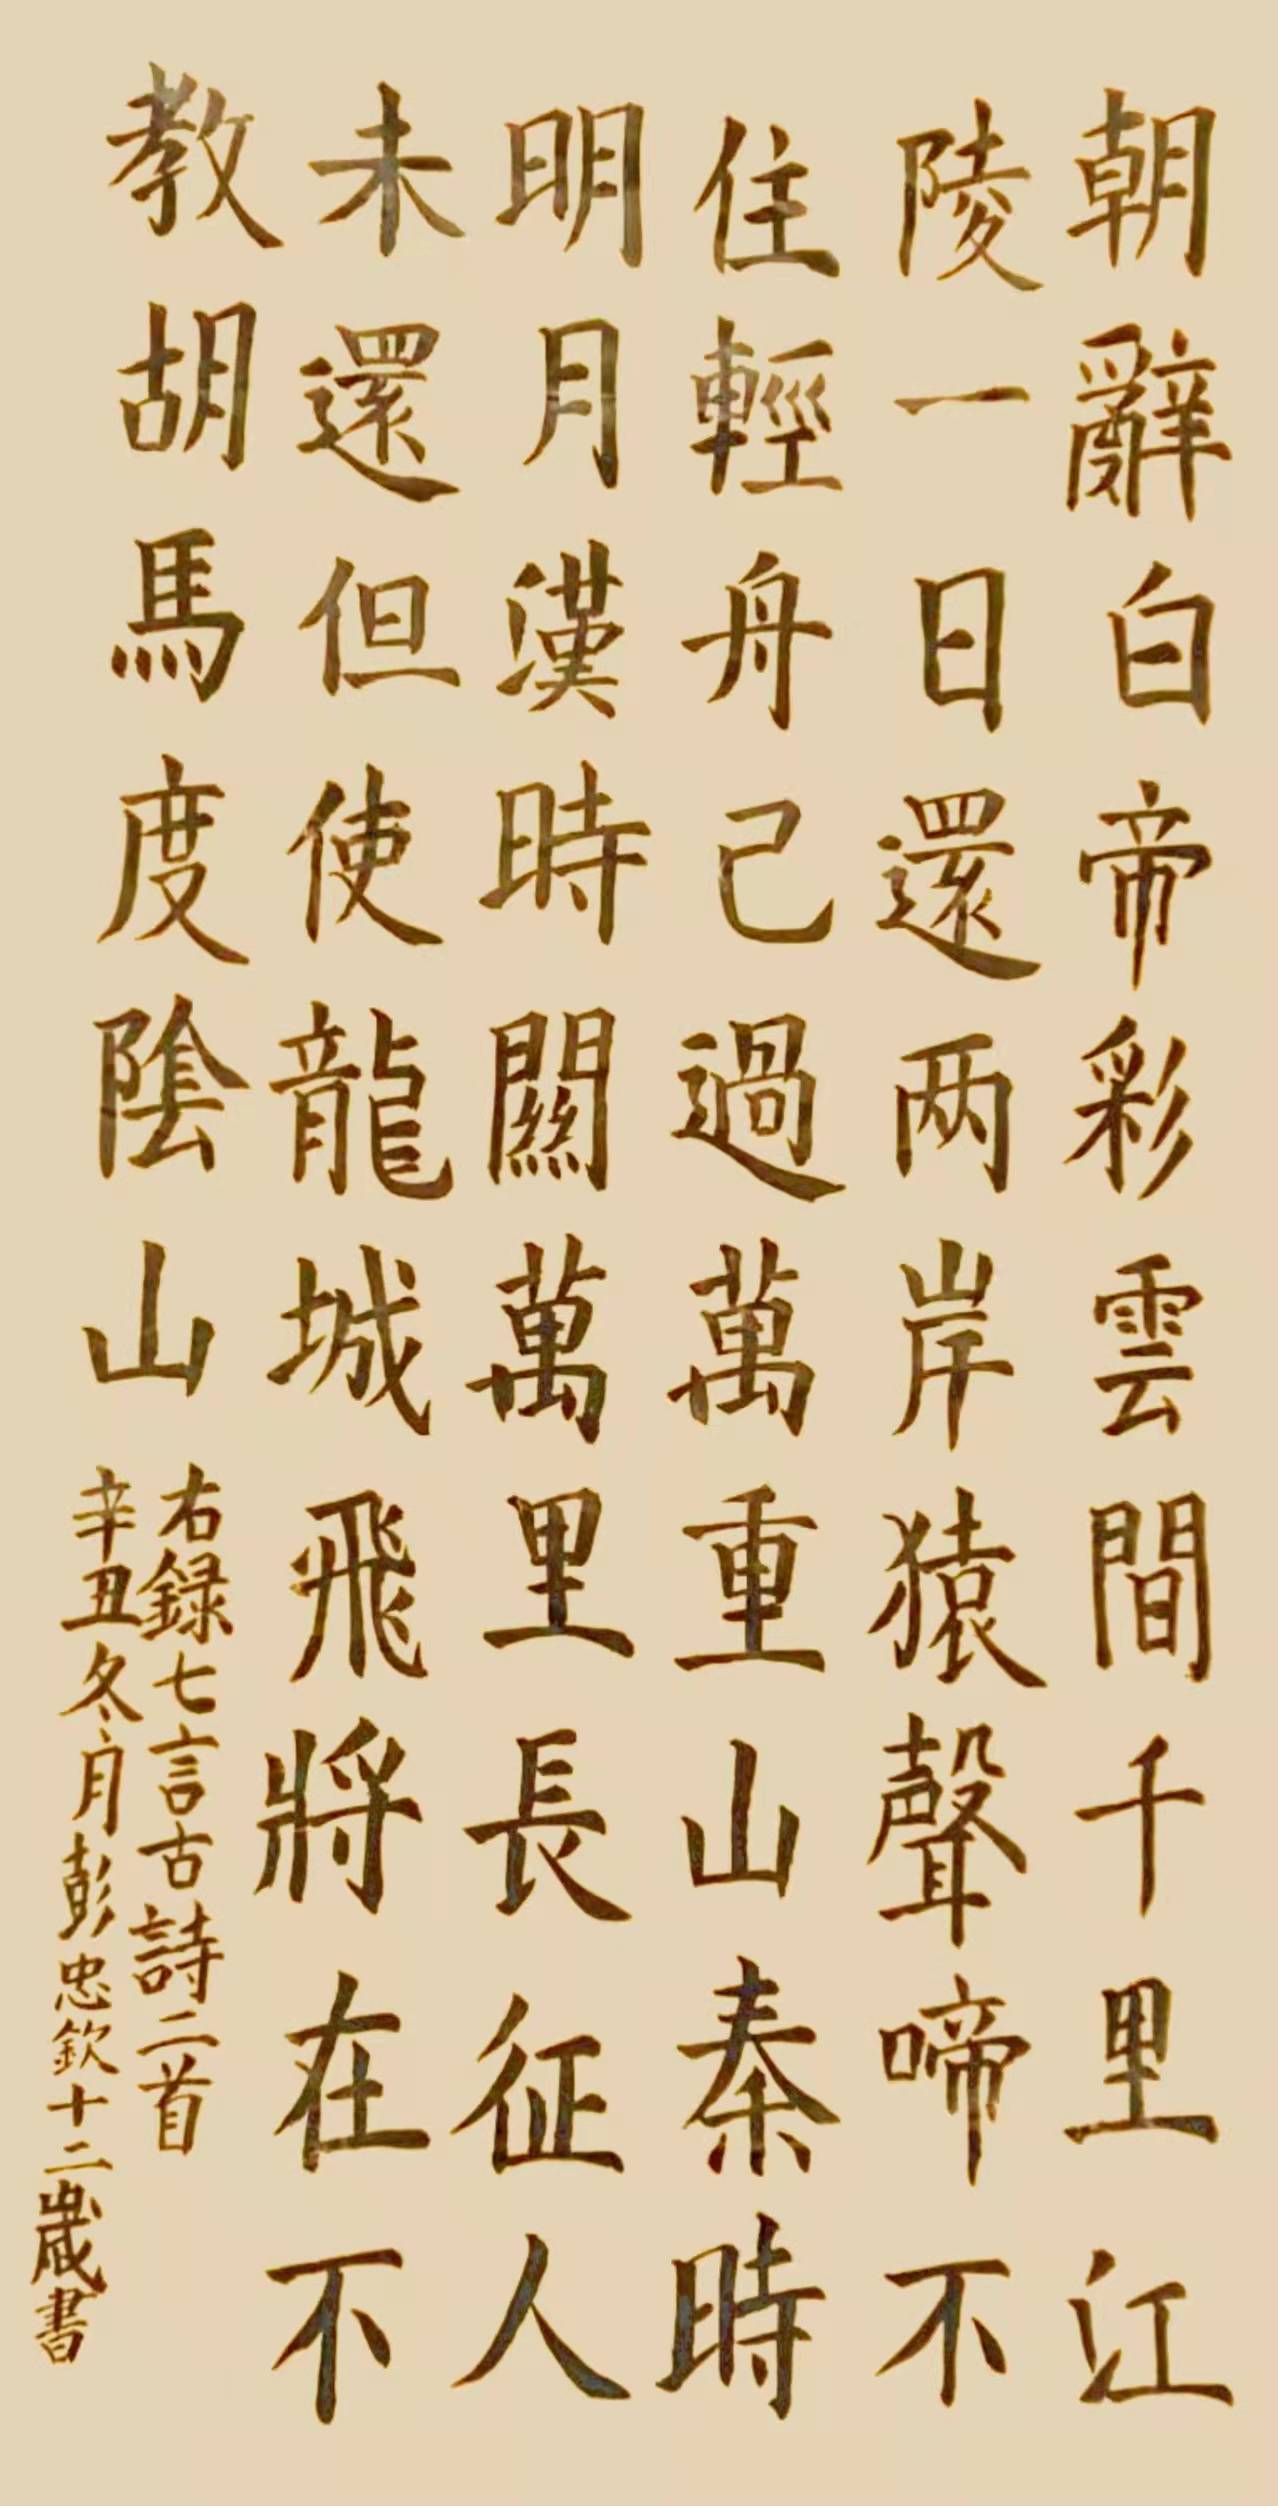 朝辭白帝彩雲間千里江
陵一日還两岸猿聲啼不
住輕舟己過萬重山秦時
明月漢時關萬里長征人
未還但使龍城飛將在不
教胡馬度陰山
右録七言古詩二首
辛丑冬月彭忠欽十二歲書